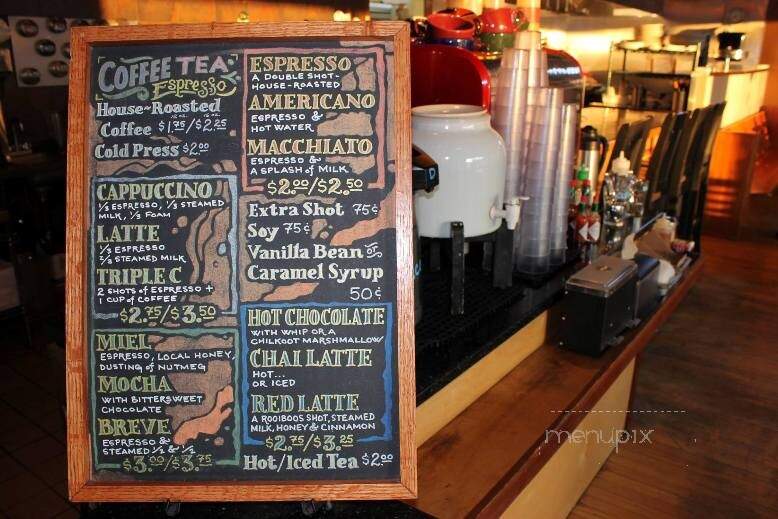 COFFEE TEA
Espresso
House-Roasted
12 oz. 16 oz.
Coffee $1.75/$2.25
Cold Press $2.00
CAPPUCCINO
⅓ ESPRESSO, ⅓ STEAMED
MILK, ⅓ FOAM
LATTE
⅓ ESPRESSO
⅔ STEAMED MILK
TRIPLE C
2 SHOTS of ESPRESSO +
1 CUP of COFFEE
$2.75/$3.50
MIEL
ESPRESSO, LOCAL HONEY,
DUSTING of NUTMEG
MOCHA
WITH BITTERSWEET
CHOCOLATE
BREVE
ESPRESSO &
STEAMED ½ & ½
$3.00/$3.75
ESPRESSO
A DOUBLE SHOT-
HOUSE-ROASTED
AMERICANO
ESPRESSO &
HOT WATER
MACCHIATO
ESPRESSO &
A SPLASH of MILK
$2.00/$2.50
Extra Shot 75¢
Soy 75¢
Vanilla Bean or
Caramel Syrup
50¢
HOT CHOCOLATE
WITH WHIP OR A
CHILKOOT MARSHMALLOW
CHAI LATTE
HOT...
OR ICED
RED LATTE
A ROOIBOS SHOT, STEAMED
MILK, HONEY & CINNAMON
$2.75/$3.25
Hot/Iced Tea $2.00
menupix